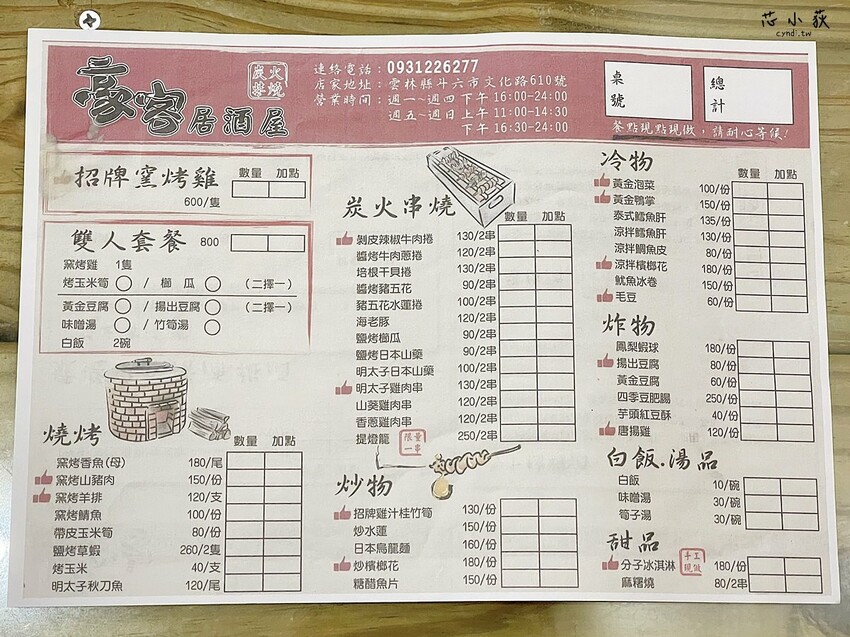 芯小荻
cyndi.tw
豪客居酒屋
炭火
串燒
連絡電話：0931226277
店家地址：雲林縣斗六市文化路610號
營業時間：週一-週四 下午 16:00-24:00
週五-週日 上午 11:00-14:30
下午 16:30-24:00
桌號
總計
餐點現點現做，請耐心等候!
招牌窯烤雞 數量 加點
600/隻
雙人套餐 800
窯烤雞 1隻
烤玉米筍 / 櫛瓜 (二擇一)
黃金豆腐 / 揚出豆腐 (二擇一)
味噌湯 / 竹筍湯
白飯 2碗
燒烤 數量 加點
窯烤香魚(母) 180/尾
窯烤山豬肉 150/份
窯烤羊排 120/支
窯烤鯖魚 100/份
帶皮玉米筍 80/份
鹽烤草蝦 260/2隻
烤玉米 40/支
明太子秋刀魚 120/尾
炭火串燒 數量 加點
剝皮辣椒牛肉捲 130/2串
醬烤牛肉蔥捲 120/2串
培根干貝捲 130/2串
醬烤豬五花 90/2串
豬五花水蓮捲 100/2串
海老豚 120/2串
鹽烤櫛瓜 90/2串
鹽烤日本山藥 90/2串
明太子日本山藥 100/2串
明太子雞肉串 130/2串
山葵雞肉串 120/2串
香蔥雞肉串 120/2串
提燈籠 限量一串 250/2串
炒物 數量 加點
招牌雞汁桂竹筍 130/份
炒水蓮 150/份
日本烏龍麵 160/份
炒檳榔花 180/份
糖醋魚片 150/份
冷物 數量 加點
黃金泡菜 100/份
黃金鴨掌 150/份
泰式鱈魚肝 135/份
涼拌鱈魚肝 130/份
涼拌鯛魚皮 80/份
涼拌檳榔花 180/份
魷魚冰卷 150/份
毛豆 60/份
炸物
鳳梨蝦球 180/份
揚出豆腐 80/份
黃金豆腐 60/份
四季豆肥腸 250/份
芋頭紅豆酥 40/份
唐揚雞 120/份
白飯.湯品
白飯 10/碗
味噌湯 30/碗
筍子湯 30/碗
甜品 手工現做
分子冰淇淋 180/份
麻糬燒 80/2串